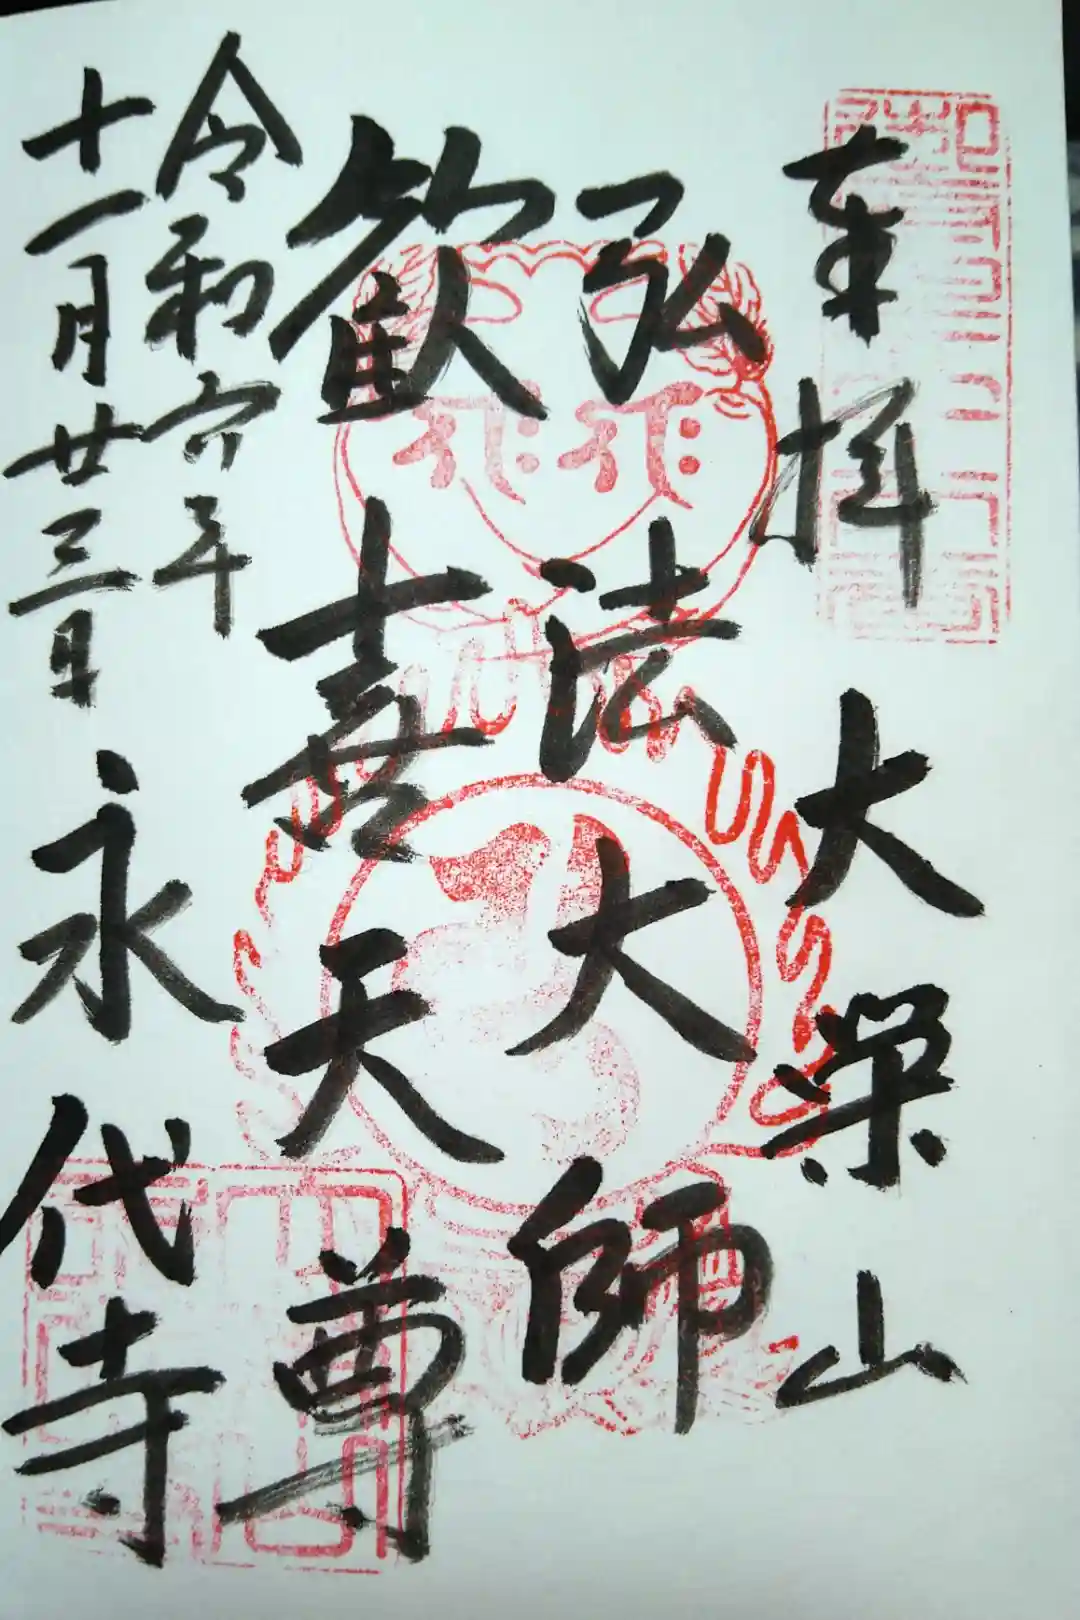 奉拝
大榮山
弘法大師
歓喜天尊
令和六年
十一月廿三日
永代寺